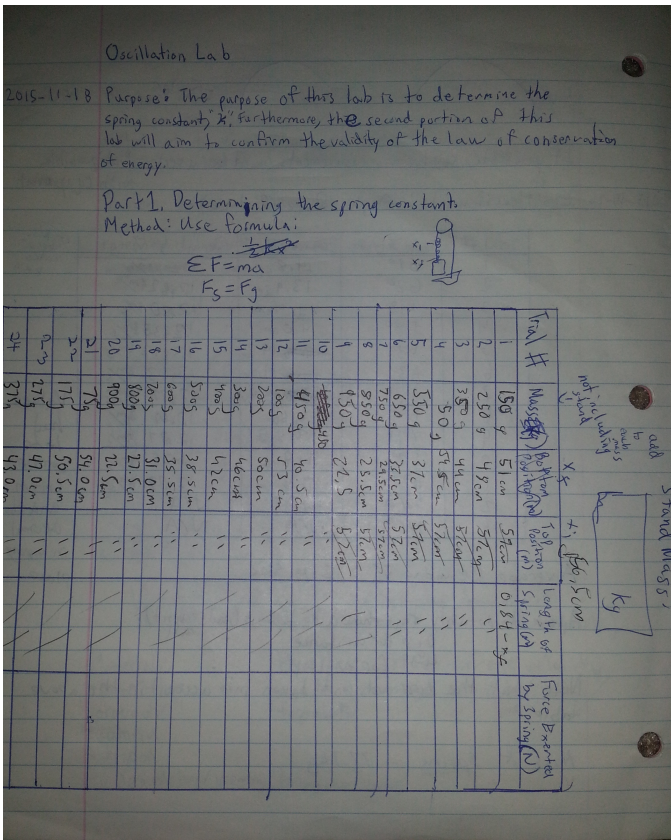 Oscillation Lab
2015-11-18 Purpose: The purpose of this lab is to determine the
spring constant, "k". Furthermore, the second portion of this
lab will aim to confirm the validity of the law of conservation
of energy.
Part 1. Determining the spring constant.
Method: Use formula:
ΣF=ma
Fs=Fg
x₁
x₂
Stand Mass:
kg
add to each mass
not including stand
xf
xi 56,5cm
Trial # Mass Bottom Position (m) Top Position (m) Length of Spring (m) Force Exerted by Spring (N)
1 150 g 51 cm 57cm 0.84-xf
2 250 g 48cm 57cm "
3 350 g 44cm 57cm "
4 50g 54.5cm 57cm "
5 550g 37cm 57cm "
6 650g 33.5cm 57cm "
7 750g 29.5cm 57cm
8 850g 25.5cm 57cm "
9 950g 22.5 57cm "
10
11 450g 40.5cm "
12 100g 53cm "
13 200g 50cm "
14 300g 46cm "
15 400g 42cm "
16 500g 38.5cm "
17 600g 35.5cm "
18 700g 31.0cm "
19 800g 27.5cm "
20 900g 22.5cm "
21 75g 54.0cm "
22 175g 50.5cm "
23 275g 47.0cm "
24 375g 43.0cm "